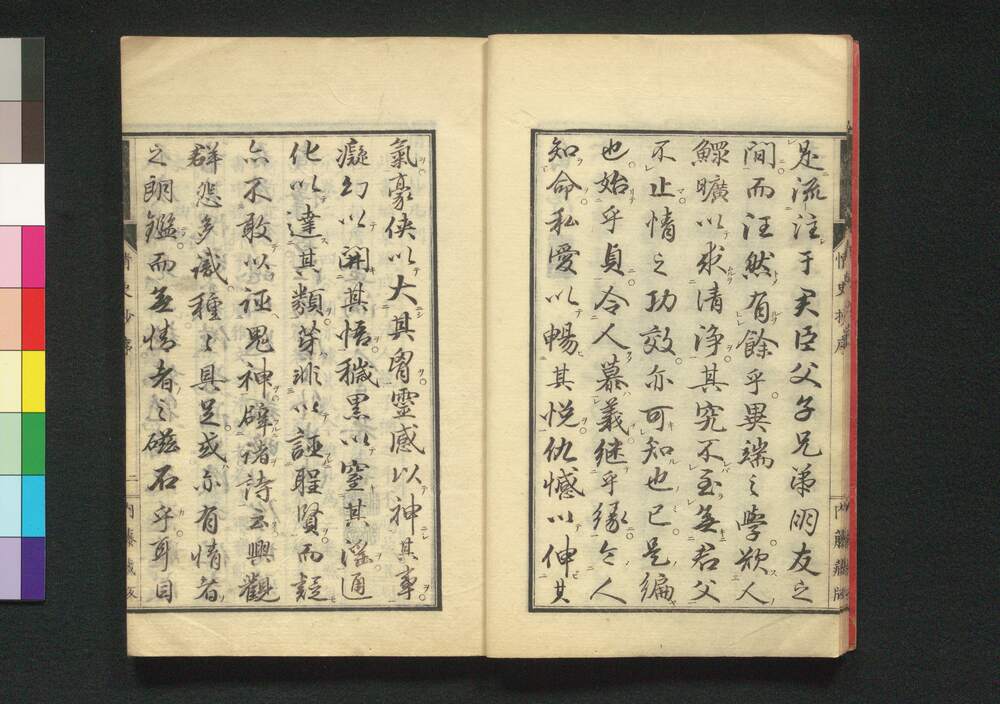 是流注于君臣父子兄弟朋友之
間而汪然有餘乎異端之學欲人
鰥曠以求清浄其究不至無君父
不止情之功效亦可知也已是編
也始乎貞令人慕義継乎緣令人
知命私愛以暢其悦仇憾以伸其
氣豪俠以大其胷靈感以神其事
癡幻以開其悟穢黒以窒其淫通
化以達其類芽非以誣聖賢而疑
亦不敢以誣鬼神辟諸詩云興觀
群怨多識種〻具足或亦有情者
之朗鑑而無情者之磁石乎耳目
情史抄序
二